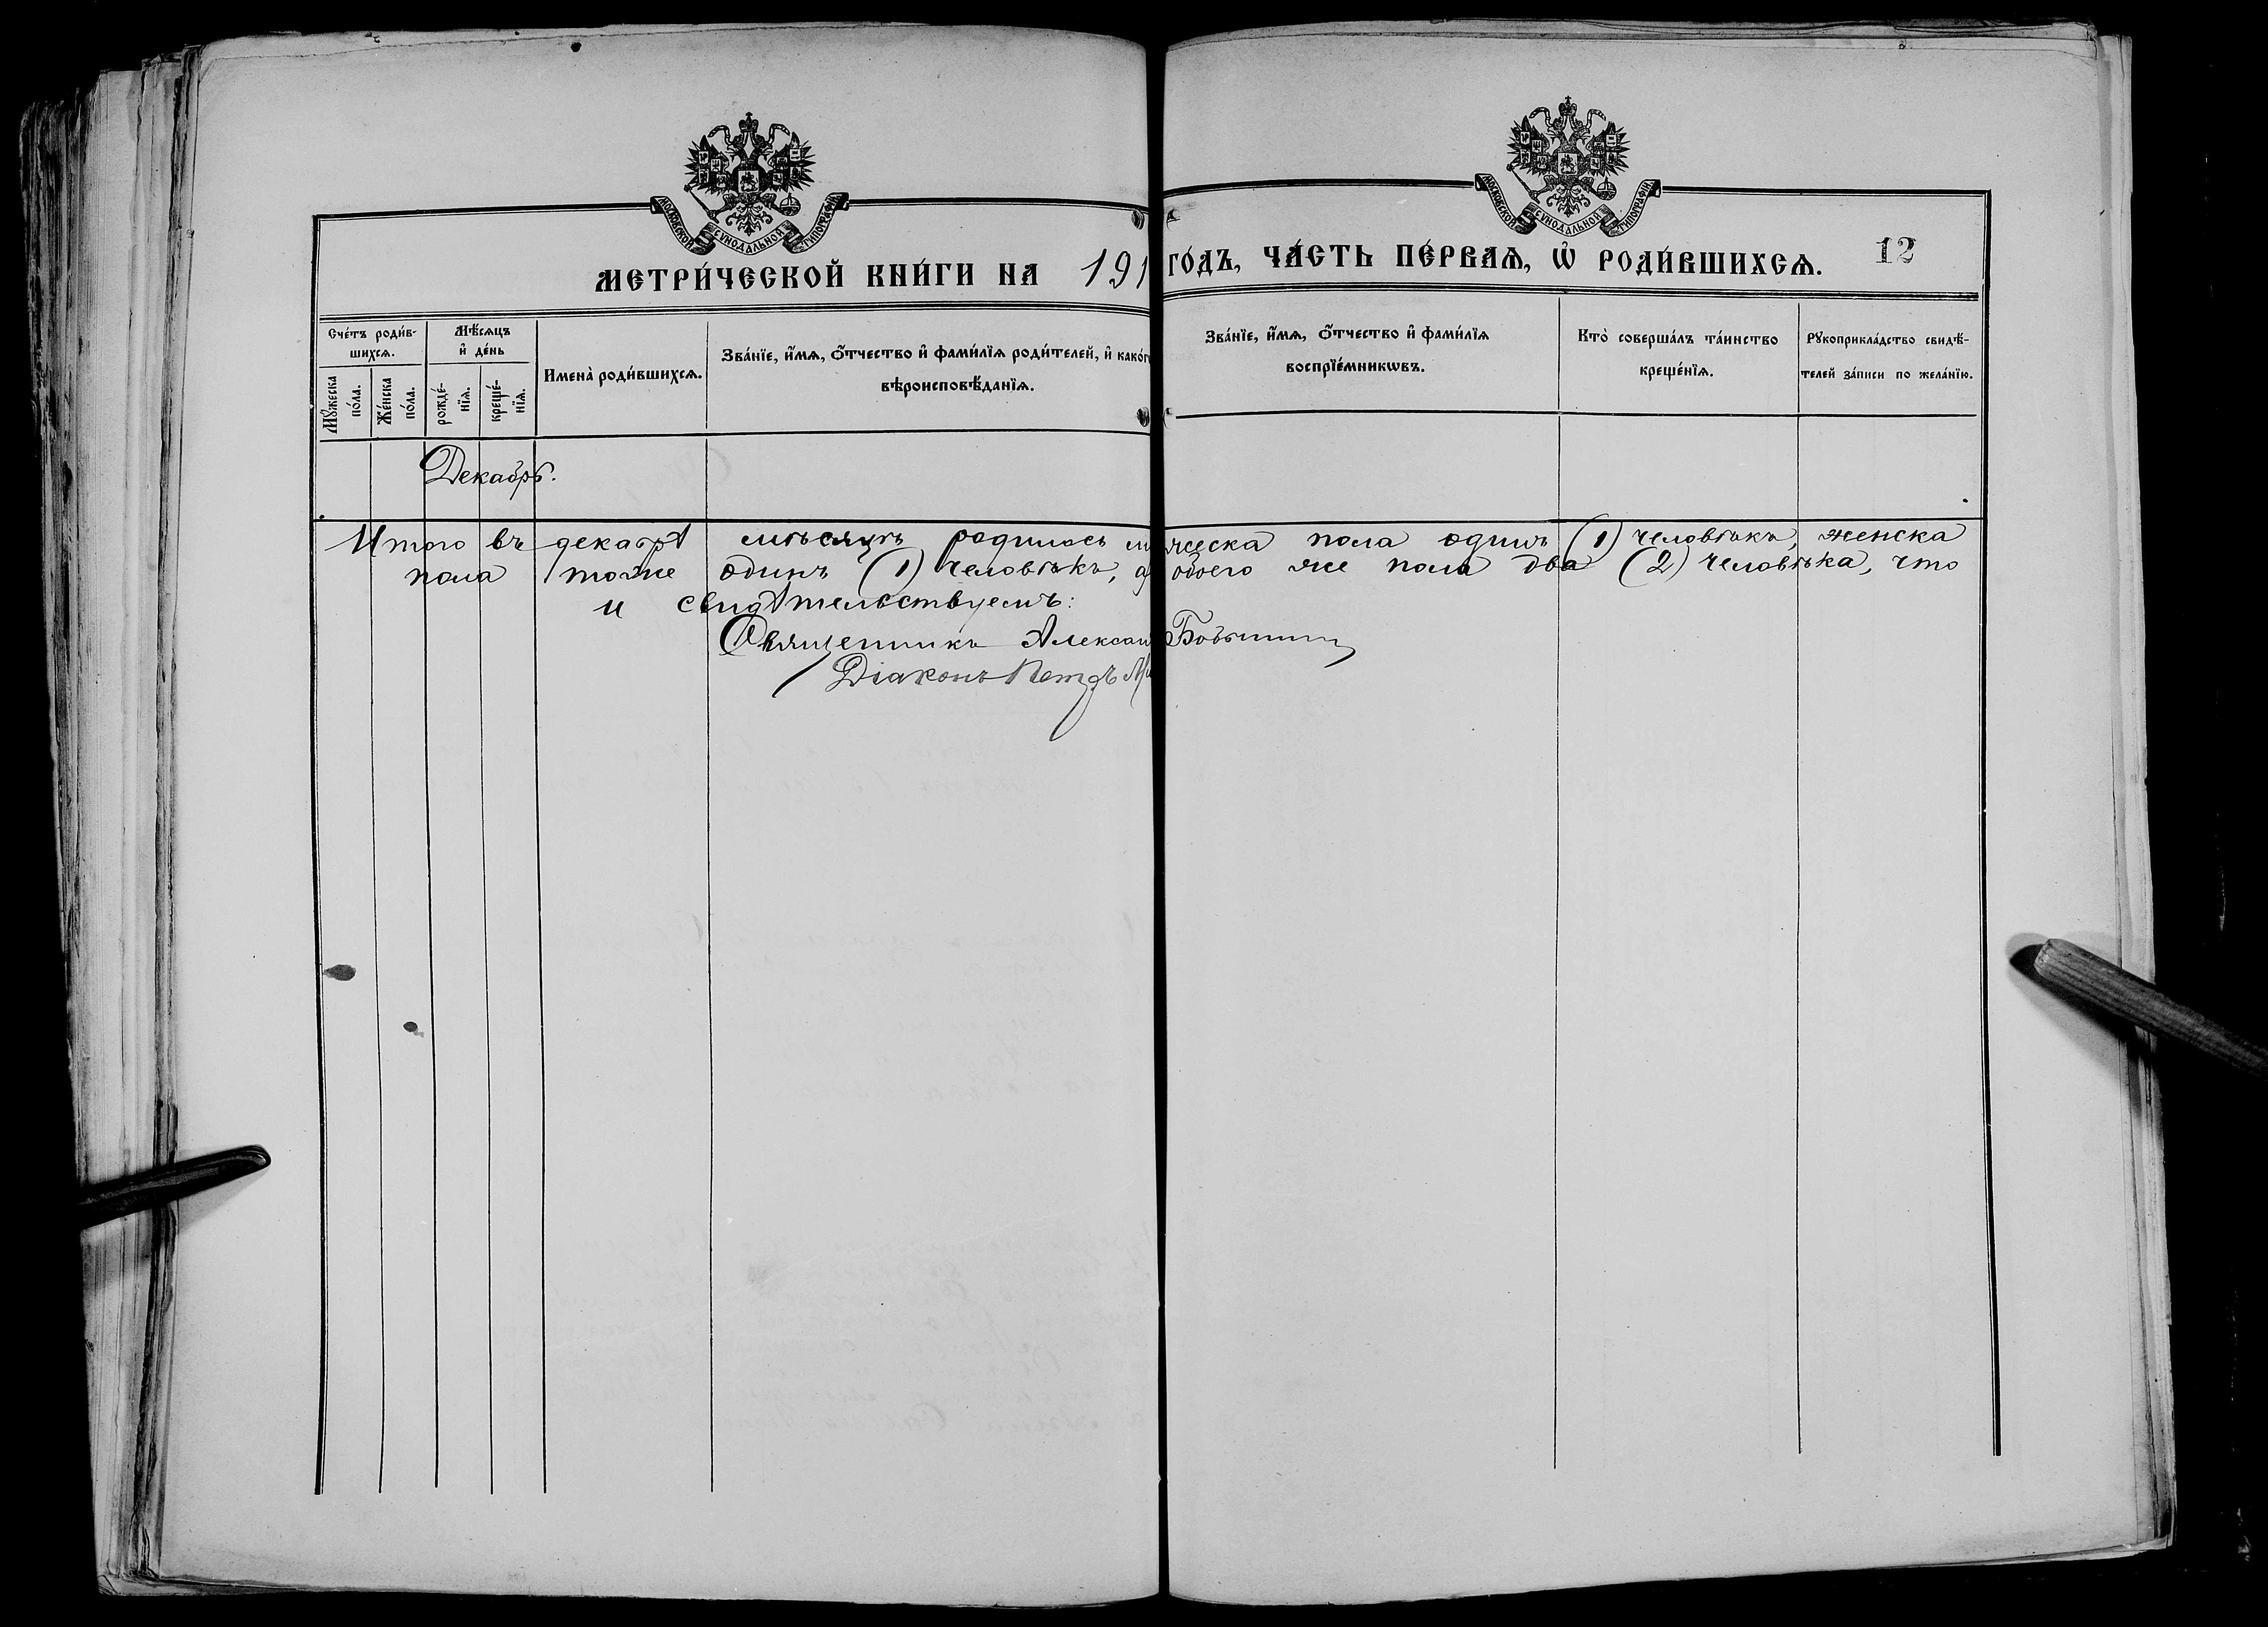 МОСКОВСКОЙ СѴНОДАЛЬНОЙ ТИПОГРАФІИ
МОСКОВСКОЙ СѴНОДАЛЬНОЙ ТИПОГРАФІИ
МЕТРИ́ЧЕСКОЙ КНИ́ГИ НА 191
ГО́ДЪ, ЧА́СТЬ ПЕ́РВАѦ, Ѡ҆ РОДИ́ВШИХСѦ. 12
Сче́тъ роди́в-
шихсѧ.
Мꙋ́жеска по́ла.
Же́нска по́ла.
Мѣ́сѧцъ
и҆ де́нь
рожде́-нїѧ.
креще́-нїѧ.
Имена̀ роди́вшихсѧ.
Зва́нїе, и҆́мѧ, ѻ҆́тчество и҆ фами́лїѧ роди́телей, и҆ како́г
вѣроисповѣ́данїѧ.
Зва́нїе, и҆́мѧ, ѻ҆́тчество и҆ фами́лїѧ
воспрїе́мникѡвъ.
Кто̀ соверша́лъ та́инство
креще́нїѧ.
Рꙋкоприкла́дство свидѣ́-
телей за́писи по жела́нїю.
Декабрь.
Итого въ декабрѣ мѣсяцѣ родилось му жеска пола одинъ (1) человѣкъ, женска
пола тоже одинъ (1) человѣкъ, а обоего же пола два (2) человѣка, что
и свидѣтельствуемъ:
Священникъ Алексан
Діаконъ Петръ